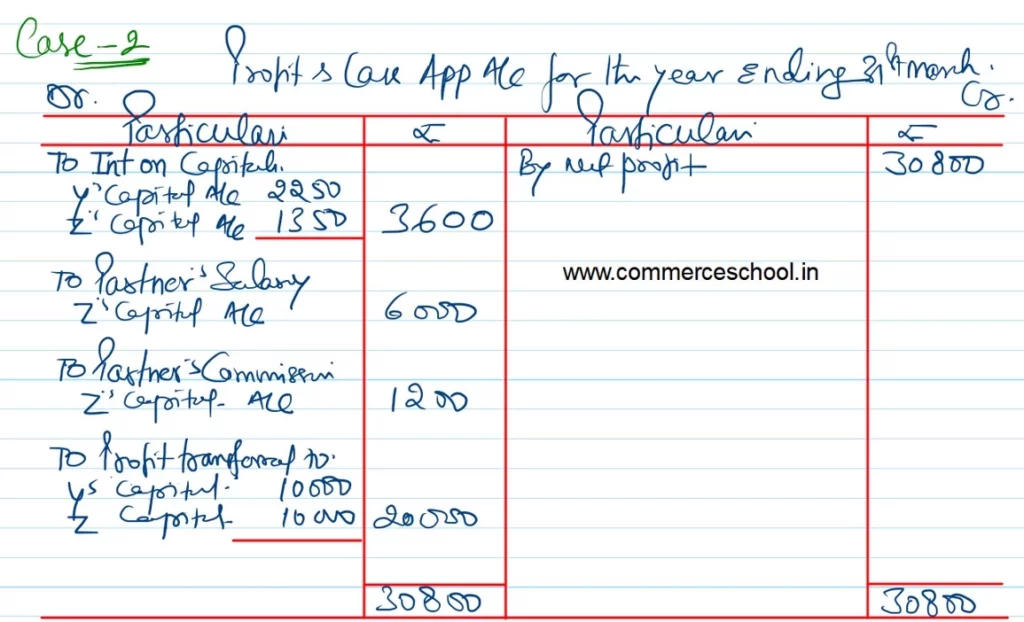 Case-2
Profit & Loss App A/c for the year Ending 31st March.
Dr. Cr.
Particulars ₹ Particulars ₹
To Int on Capitals. By net profit 30800
Y's Capital A/c 2250
Z's Capital A/c 1350 3600
To Partner's Salary
Z's Capital A/c 6000
www.commerceschool.in
To Partner's Commission
Z's Capital A/c 1200
To Profit transferred to.
Ys Capital 10000
Z Capital 10000 20000
30800 30800